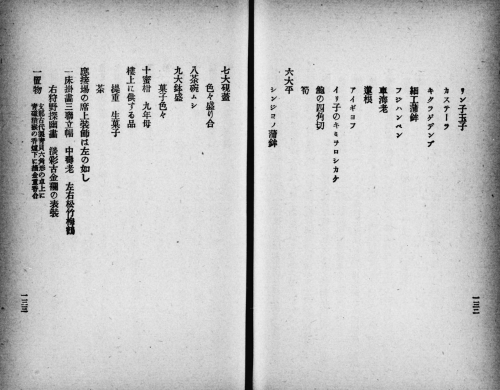 リン子玉子
カステーラ
キクフゲデンブ
細工蒲鉾
フジハンペン
車海老
蓮根
アイギヨフ
イリ子のキミヲロシカケ
鮑の四角切
筍
シンジヨノ蒲鉾
六大平
一三二
七大硯蓋
色々盛り合
八茶碗ムシ
九大鉢盛
菓子色々
十蜜柑 九年母
樓上に供する品
提重 生菓子
茶
應接場の席上裝飾は左の如し
一床掛畫三聯立幅 中壽老 左右松竹梅鶴
右狩野探幽畫 淡彩古金襴の表裝
一置物
一三三